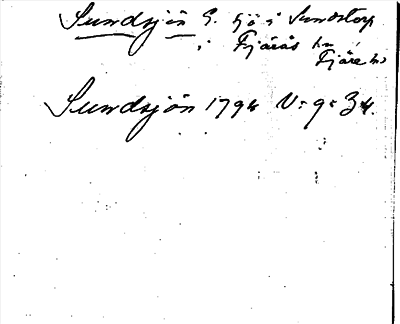 Sundsjön S. sjö i Sundstorp
i Fjärås sn
Fjäre hd
Sundsjön 1794 V-9-34.